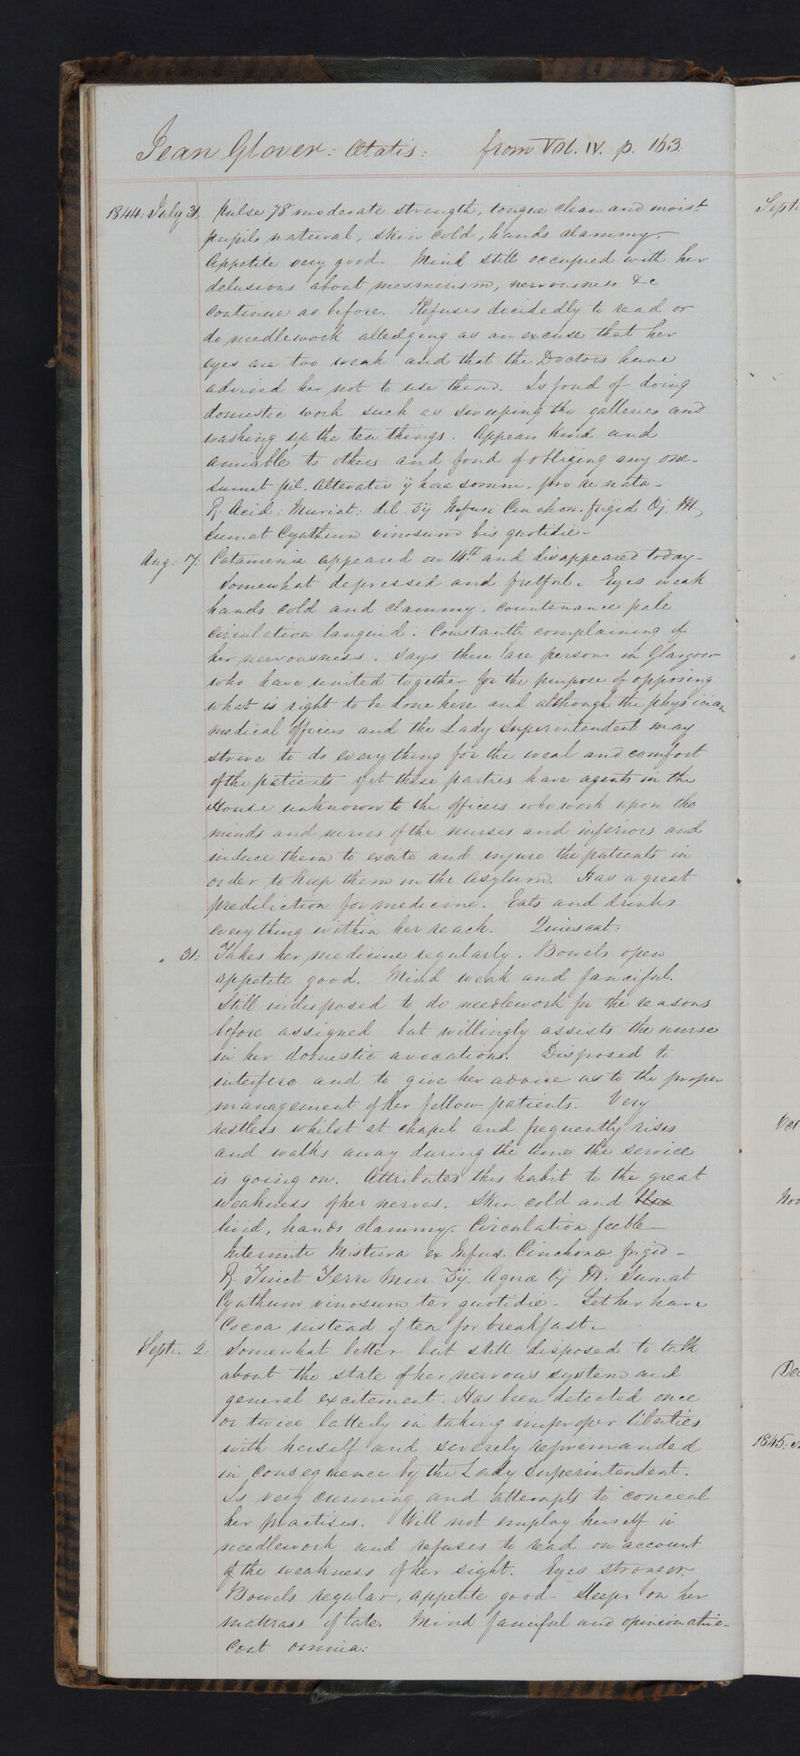 Jean Glover: Ætatis: from Vol. IV. p. 163.
1844. July 31. Pulse 78 moderate strength, tongue clean and moist
pupils natural, skin cold, hands clammy
Appetite very good. Mind still occupied with her
delusions about mesmerism, nervousness &c
continue as before. Refuses decidedly to read or
do needlework alledging as an excuse that her
eyes are too weak and that the Doctors have
advised her not to use them. Is fond of doing
domestic work such as sweeping the galleries and
washing up the tea things. Appears kind and
amiable to others and fond of obliging any one.
Sumat pil. Alterativ ij hora somni. pro re nata.
R. Acid. Muriat: dil. ʒij Infusi Cinchon. frigid ℔j. M,
Sumat Cyathum vinosum bis quotidie.
Aug: 17. Catamenia appeared on 14th and disappeared today.
Somewhat depressed and fretful. Eyes weak
hands cold and clammy, countenance pale
circulation languid. Constantly complaining of
her nervousness. Says there are persons in Glasgow
who have united together for the purpose of opposing
what is right to be done here and although the physician
medical officers and the Lady Superintendent may
strive to do every thing for the weal and comfort
of the patients yet these parties have agents in the
House unknown to the officers who work upon the
minds and nerves of the nurses and inferiors and
induce them to excite and injure the patients in
order to keep them in the Asylum. Has a great
predeliction for medecine. Eats and drinks
every thing within her reach. Quiescat.
" 31: Takes her medicine regularly. Bowels open
appetite good. Mind weak and fanciful.
Still indisposed to do needlework for the reasons
before assigned but willingly assists the nurse
in her domestic avocations. Disposed to
interfere and to give her advice as to the proper
management of her fellow patients. Very
restless whilst at chapel and frequently rises
and walks away during the time the service
is going on. Attributes this habit to the great
weakness of her nerves. Skin cold and
livid, hands clammy. Circulation feeble
Intermitt Mistura ex Infus. Cinchonæ frigid.
R. Tinct Ferri Mur. ʒij. Aquæ ℔j M. Sumat
Cyathum vinosum ter quotidie. Let her have
Cocoa instead of tea for breakfast.
Sept. 2. Somewhat better but still disposed to talk
about the state of her nervous system and
general excitement. Has been detected once
or twice latterly in taking improper liberties
with herself and severely reprimanded
in consequence by the Lady Superintendent.
Is very cunning and attempts to conceal
her practises. Will not employ herself in
needlework and refuses to read on account
of the weakness of her sight. Eyes stronger
Bowels regular, appetite good. Sleeps on her
mattrass of late. Mind fanciful and opinionative.
Cont omnia:
Sept:
Oct
Nov
Dec
1845.